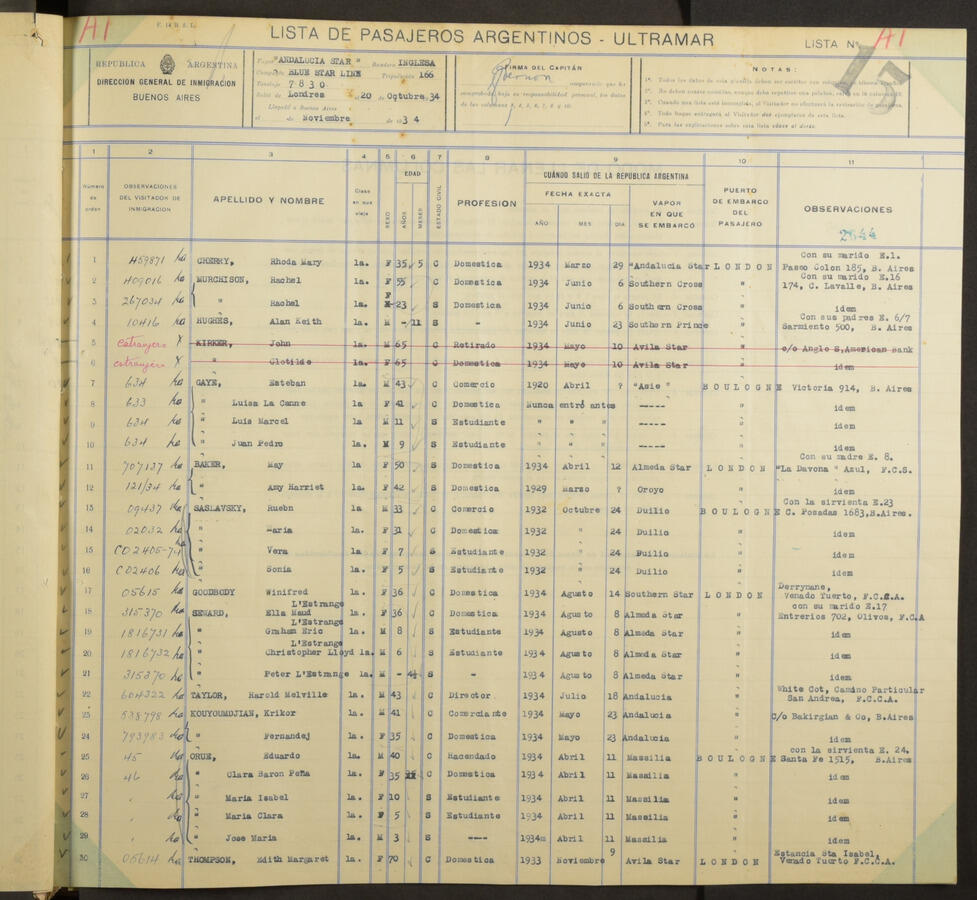 A1
F. 14 D. S. I.
LISTA DE PASAJEROS ARGENTINOS - ULTRAMAR
LISTA Nº A1
15
REPUBLICA ARGENTINA
DIRECCION GENERAL DE INMIGRACION
BUENOS AIRES
"ANDALUCIA STAR" Bandera INGLESA
BLUE STAR LINE Tripulación 166
7830
Salió de Londres el 20 de Octubre, 34
Llegado a Buenos Aires
el de Noviembre de 1934
FIRMA DEL CAPITÁN
NOTAS:
1 2 3 4 5 6 7 8 9 10 11
Número de orden
OBSERVACIONES DEL VISITADOR DE INMIGRACION
APELLIDO Y NOMBRE
Clase en que viaja
SEXO
EDAD
AÑOS
MESES
ESTADO CIVIL
PROFESION
CUÁNDO SALIO DE LA REPUBLICA ARGENTINA
FECHA EXACTA
AÑO MES DIA
VAPOR EN QUE SE EMBARCÓ
PUERTO DE EMBARCO DEL PASAJERO
OBSERVACIONES
2844
Con su marido E.1.
1 459871 CHERRY, Rhoda Mary 1a. F 35 5 C Domestica 1934 Marzo 29 "Andalucia Star LONDON Paseo Colon 185, B. Aires
Con su marido E.16
2 409016 MURCHISON, Rachel 1a. F 55 C Domestica 1934 Junio 6 Southern Cross " 174, C. Lavalle, B. Aires
3 267034 " Rachel 1a. F 23 S Domestica 1934 Junio 6 Southern Cross " idem
Con sus padres E. 6/7
4 10416 HUGHES, Alan Keith 1a. M - 11 S - 1934 Junio 23 Southern Prince " Sarmiento 500, B. Aires
5 extranjero X KIRKER, John 1a. M 65 C Retirado 1934 Mayo 10 Avila Star " c/o Anglo S,American Bank
6 extranjero X " Clotilde 1a. F 65 C Domestica 1934 Mayo 10 Avila Star " idem
7 634 GAYE, Esteban 1a M 43 C Comercio 1920 Abril ? "Asie" BOULOGNE Victoria 914, B. Aires
8 633 " Luisa La Canne 1a F 41 C Domestica Nunca entró antes ----- " idem
9 634 " Luis Marcel 1a M 11 S Estudiante " " " ----- " idem
10 634 " Juan Pedro 1a. M 9 S Estudiante " " " ----- " idem
Con su madre E. 8.
11 707137 BAKER, May 1a. F 50 S Domestica 1934 Abril 12 Almeda Star LONDON "La Davona" Azul, F.C.S.
12 121/34 " Amy Harriet 1a. F 42 S Domestica 1929 Marzo ? Oroyo " idem
Con la sirvienta E.23
13 09437 SASLAVSKY, Ruebn 1a M 33 C Comercio 1932 Octubre 24 Duilio BOULOGNE C. Posadas 1683,B.Aires.
14 02032 " Maria 1a. F 31 C Domestica 1932 " 24 Duilio " idem
15 CO2405-7-1 " Vera 1a F 7 S Estudiante 1932 " 24 Duilio " idem
16 CO2406 " Sonia 1a. F 5 S Estudiante 1932 " 24 Duilio " idem
Derrymane,
17 05615 GOODBODY Winifred 1a. F 36 C Domestica 1934 Agusto 14 Southern Star LONDON Venado Tuerto, F.C.C.A.
L'Estrange con su marido E.17
18 315370 SEWARD, Ella Maud 1a F 36 C Domestica 1934 Agusto 8 Almeda Star " Entrerios 702, Olivos, F.C.A
L'Estrange
19 1816731 " Graham Eric 1a. M 8 S Estudiante 1934 Agusto 8 Almeda Star " idem
L'Estrange
20 1816732 " Christopher Lloyd 1a. M 6 S Estudiante 1934 Agusto 8 Almeda Star " idem
21 315370 " Peter L'Estrange 1a. M - 4½ S - 1934 Agusto 8 Almeda Star " idem
White Cot, Camino Particular
22 604322 TAYLOR, Harold Melville 1a M 43 C Director 1934 Julio 18 Andalucia " San Andrea, F.C.C.A.
23 538798 KOUYOUMDJIAN, Krikor 1a. M 41 C Comerciante 1934 Mayo 23 Andalucia " C/o Bakirgian & Co, B.Aires
24 793983 " Fernandej 1a. F 35 C Domestica 1934 Mayo 23 Andalucia " idem
con la sirvienta E. 24.
25 45 ORUE, Eduardo 1a. M 40 C Hacendado 1934 Abril 11 Massilia BOULOGNE Santa Fe 1515, B.Aires
26 46 " Clara Baron Peña 1a F 35 C Domestica 1934 Abril 11 Massilia " idem
27 " Maria Isabel 1a. F 10 S Estudiante 1934 Abril 11 Massilia " idem
28 " Maria Clara 1a F 5 S Estudiante 1934 Abril 11 Massilia " idem
29 " Jose Maria 1a. M 3 S ---- 1934 Abril 11 Massilia " idem
Estancia Sta Isabel,
30 05614 THOMPSON, Edith Margaret 1a. F 70 C Domestica 1933 Noviembre 9 Avila Star LONDON Venado Tuerto F.C.C.A.